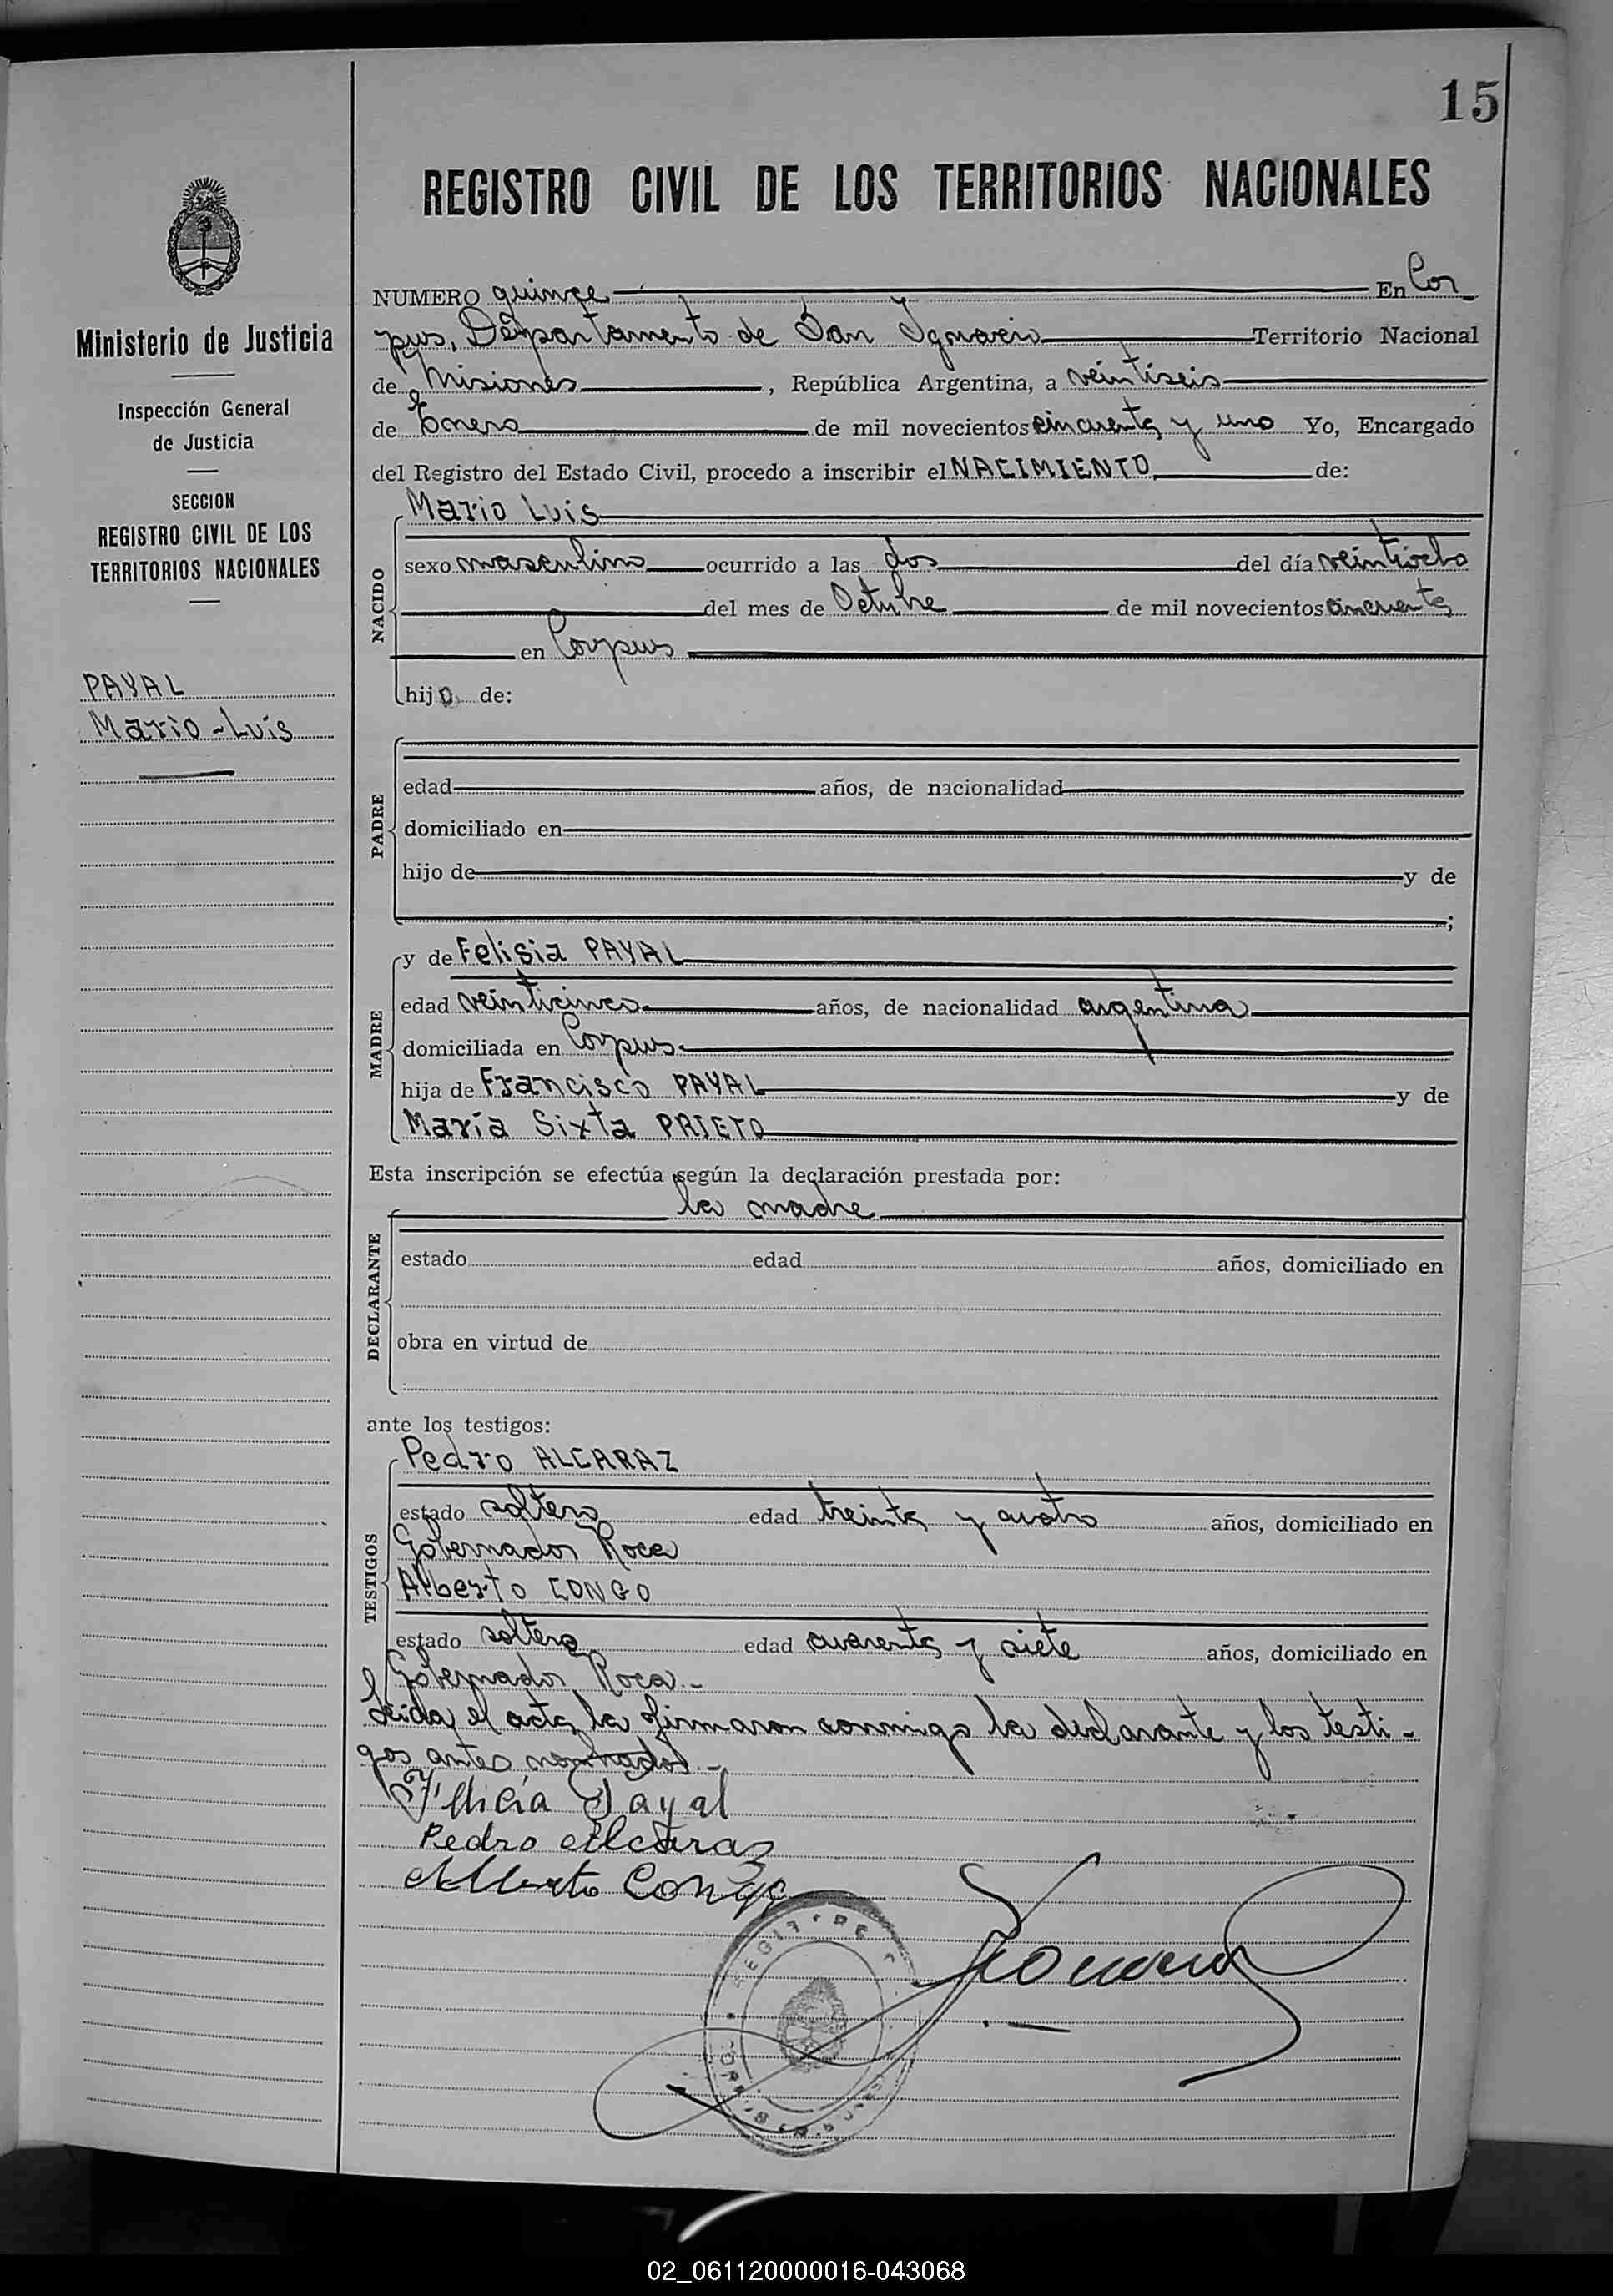 15
REGISTRO CIVIL DE LOS TERRITORIOS NACIONALES
Ministerio de Justicia
Inspección General
de Justicia
SECCION
REGISTRO CIVIL DE LOS
TERRITORIOS NACIONALES
PAYAL
Mario-Luis
NUMERO quince En Cor
pus, Departamento de San Ignacio Territorio Nacional
de Misiones, República Argentina, a veintiseis
de Enero de mil novecientos cincuenta y uno Yo, Encargado
del Registro del Estado Civil, procedo a inscribir el NACIMIENTO de:
NACIDO
Mario Luis
sexo masculino ocurrido a las dos del día veintiocho
del mes de Octubre de mil novecientos cincuenta
en Corpus
hijo de:
PADRE
edad años, de nacionalidad
domiciliado en
hijo de y de
;
MADRE
y de Felisia PAYAL
edad veinticinco años, de nacionalidad argentina
domiciliada en Corpus.
hija de Francisco PAYAL y de
María Sixta PRIETO
Esta inscripción se efectúa según la declaración prestada por:
DECLARANTE
la madre
estado edad años, domiciliado en
obra en virtud de
ante los testigos:
TESTIGOS
Pedro ALCARAZ
estado soltero edad treinta y cuatro años, domiciliado en
Gobernador Roca
Alberto CONGO
estado soltero edad cuarenta y siete años, domiciliado en
Gobernador Roca.-
Leida el acta la firmaron conmigo la declarante y los testi-
gos antes nombrados.-
Payal
Pedro Alcaraz
Alberto Congo
02_061120000016-043068